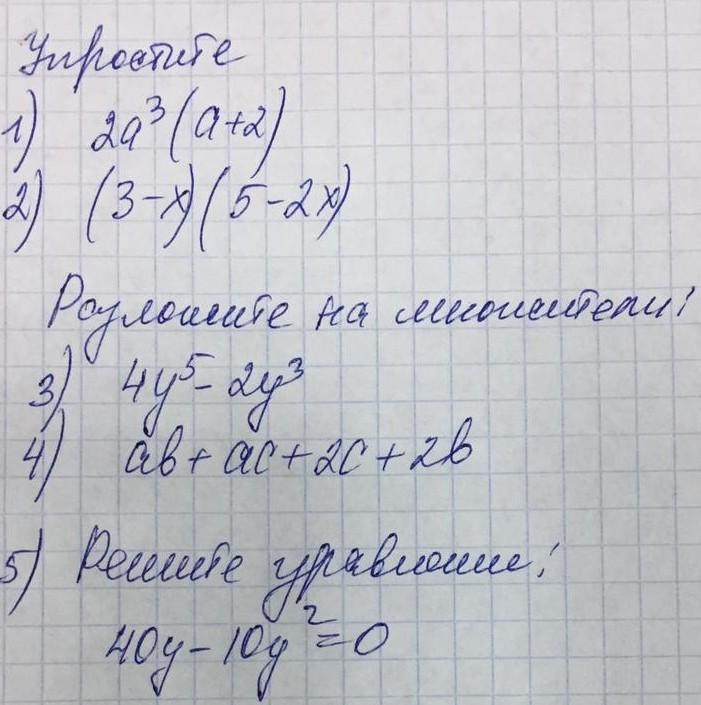 Упростите
1) 2a³(a+2)
2) (3-x)(5-2x)
Разложите на множители:
3) 4y⁵-2y³
4) ab+ac+2c+2b
5) Решите уравнение:
40y-10y²=0